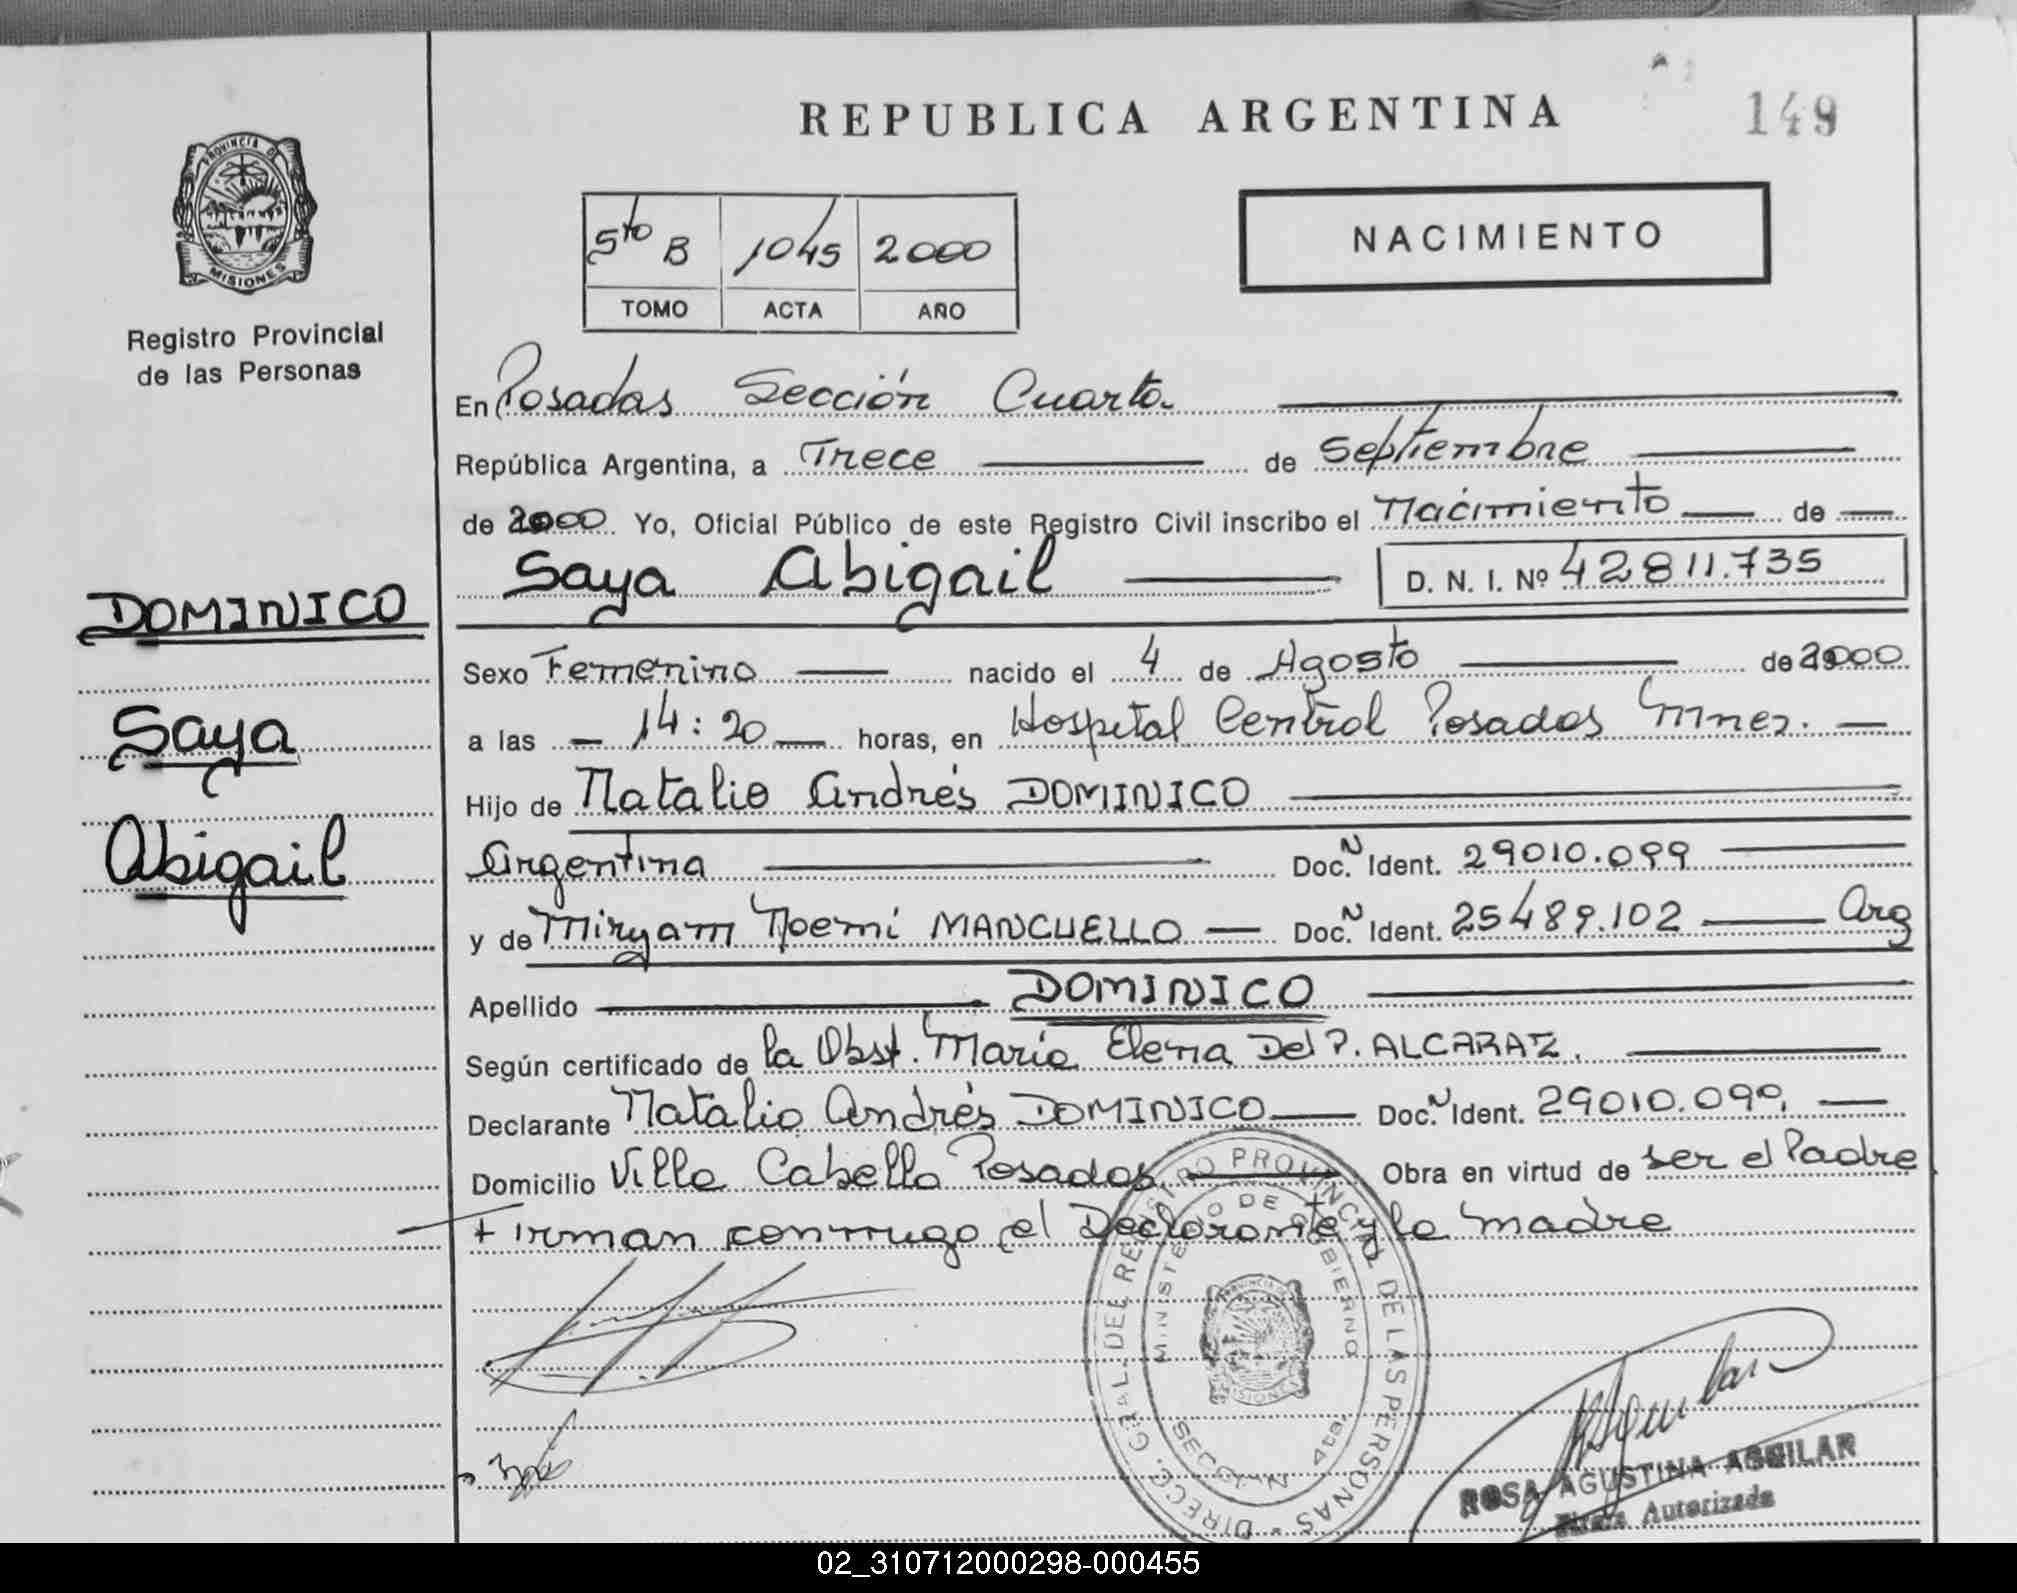 REPUBLICA ARGENTINA
149
PROVINCIA DE
MISIONES
Registro Provincial
de las Personas
5to B 1045 2000
TOMO ACTA AÑO
NACIMIENTO
En Posadas Sección Cuarta
República Argentina, a Trece de Septiembre
de 2000. Yo, Oficial Público de este Registro Civil inscribo el Nacimiento de
Saya Abigail D. N. I. Nº 42811.735
DOMINICO
Saya
Abigail
Sexo Femenino nacido el 4 de Agosto de 2000
a las 14:20 horas, en Hospital Central Posadas Mnes.
Hijo de Natalio Andrés DOMINICO
Argentina Doc.N Ident. 29010.099
y de Miryam Noemí MANCUELLO Doc.N Ident. 25489.102 Arg
Apellido DOMINICO
Según certificado de la Obst. María Elena Del P. ALCARAZ.
Declarante Natalio Andrés DOMINICO Doc.N Ident. 29010.099
Domicilio Villa Cabello Posadas Obra en virtud de ser el Padre
Firman conmigo el Declarante y la madre
DIRECC. GRAL. DEL REGISTRO PROVINCIAL DE LAS PERSONAS
MINISTERIO DE GOBIERNO
SECCION 4ta.
ROSA AGUSTINA AGUILAR
Firma Autorizada
02_310712000298-000455